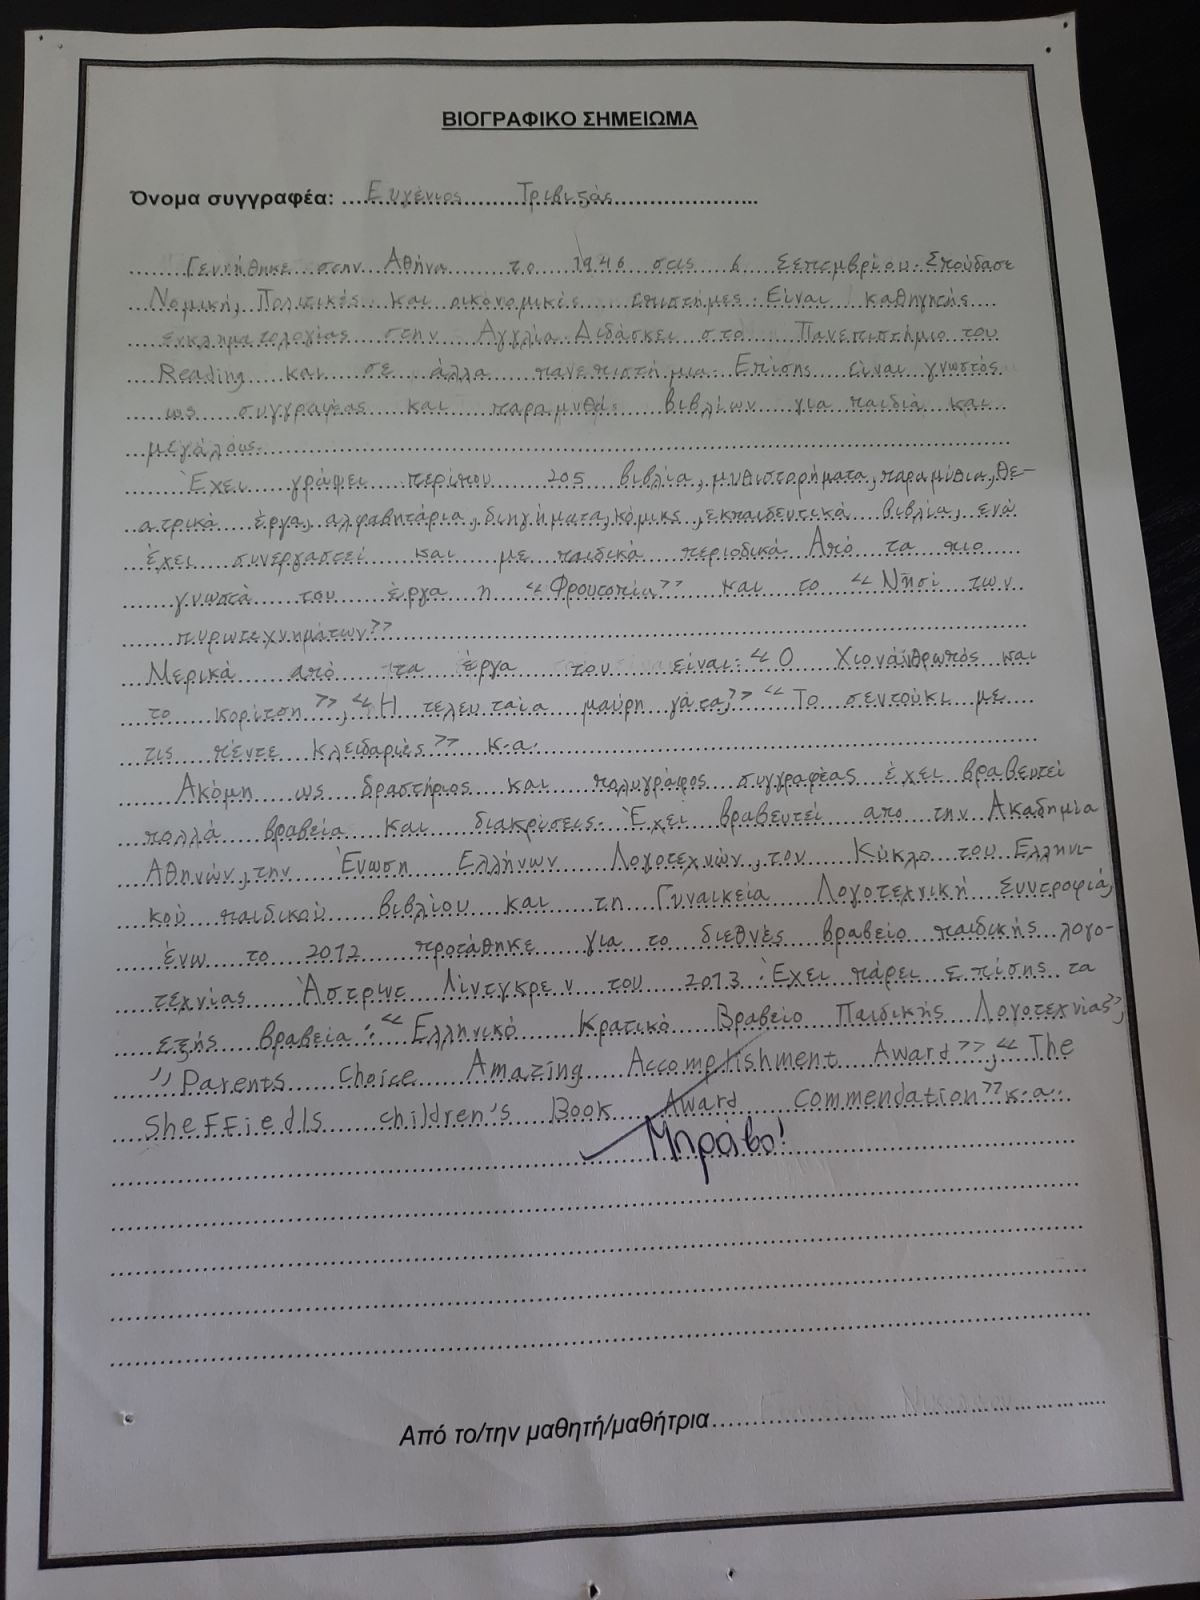 ΒΙΟΓΡΑΦΙΚΟ ΣΗΜΕΙΩΜΑ
Όνομα συγγραφέα: Ευγένιος Τριβιζάς
Γεννήθηκε στην Αθήνα το 1946 στις 6 Σεπτεμβρίου. Σπούδασε
Νομική, Πολιτικές και οικονομικές επιστήμες. Είναι καθηγητής
εγκληματολογίας στην Αγγλία. Διδάσκει στο Πανεπιστήμιο του
Reading και σε άλλα πανεπιστήμια. Επίσης είναι γνωστός
ως συγγραφέας και παραμυθάς βιβλίων για παιδιά και
μεγάλους.
Έχει γράψει περίπου 205 βιβλία, μυθιστορήματα, παραμύθια, θε-
ατρικά έργα, αλφαβητάρια, διηγήματα, κόμικς, εκπαιδευτικά βιβλία, ενώ
έχει συνεργαστεί και με παιδικά περιοδικά. Από τα πιο
γνωστά του έργα η «Φρουτοπία» και το «Νησί των
πυρωτεχνημάτων»
Μερικά από τα έργα του είναι: «Ο Χιονάνθρωπός και
το κορίτση», «Η τελευταία μαύρη γάτα», «Το σεντούκι με
τις πέντε κλειδαριές» κ.α.
Ακόμη ως δραστήριος και πολυγράφος συγγραφέας έχει βραβευτεί
πολλά βραβεία και διακρίσεις. Έχει βραβευτεί απο την Ακαδημία
Αθηνών, την Ένωση Ελλήνων Λογοτεχνών, τον Κύκλο του Ελληνι-
κού παιδικού βιβλίου και τη Γυναικεία Λογοτεχνική Συντροφιά,
ένω το 2012 προτάθηκε για το διεθνές βραβείο παιδικής λογο-
τεχνίας Άστριντ Λίντγκρεν του 2013. Έχει πάρει επίσης τα
εξής βραβεία: «Ελληνικό Κρατικό Βραβείο Παιδικής Λογοτεχνίας»,
"Parents choice Amazing Accomplishment Award», «The
Sheffiedls children's Book Award commendation» κ.α.
Μπράβο!
Από το/την μαθητή/μαθήτρια